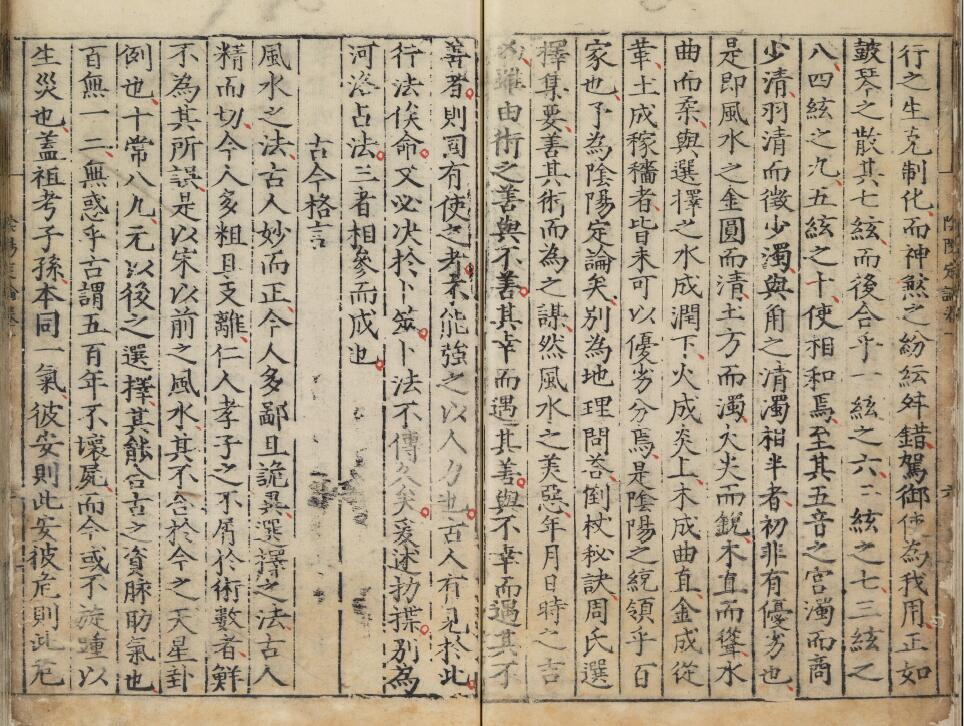 行之生克制化而神煞之紛紜舛錯駕御使為我用正如
皷琴之散其七絃而後合乎一絃之六二絃之七三絃之
八四絃之九五絃之十使相和焉至其五音之宮濁而商
少清羽清而徵少濁與角之清濁相半者初非有優劣也
是即風水之金圓而清土方而濁火尖而銳木直而聳水
曲而柔與選擇之水成潤下火成炎上木成曲直金成從
革土成稼穡者皆未可以優劣分焉是陰陽之統領乎百
家也予為陰陽定論矣別為地理問荅倒杖秘訣周氏選
擇集要善其術而為之謀然風水之美惡年月日時之吉
雖由術之善與不善其幸而遇其善與不幸而遇其不
善者則固有使之者未能強之以人力也古人有見於此
行法俟命又必决於卜筮卜法不傳久矣爰述
別為
河洛占法三者相參而成也
古今格言
風水之法古人妙而正今人多鄙且詭異選擇之法古人
精而切今人多粗且支離仁人孝子之不屑於術數者鮮
不為其所誤是以宋以前之風水其不合於今之天星卦
例也十常八九元以後之選擇其能合古之資脉肋氣也
百無一二無惑乎古謂五百年不壞屍而今或不旋踵以
生災也蓋祖考子孫本同一氣彼安則此安彼危則此危
陰陽定論卷一
六